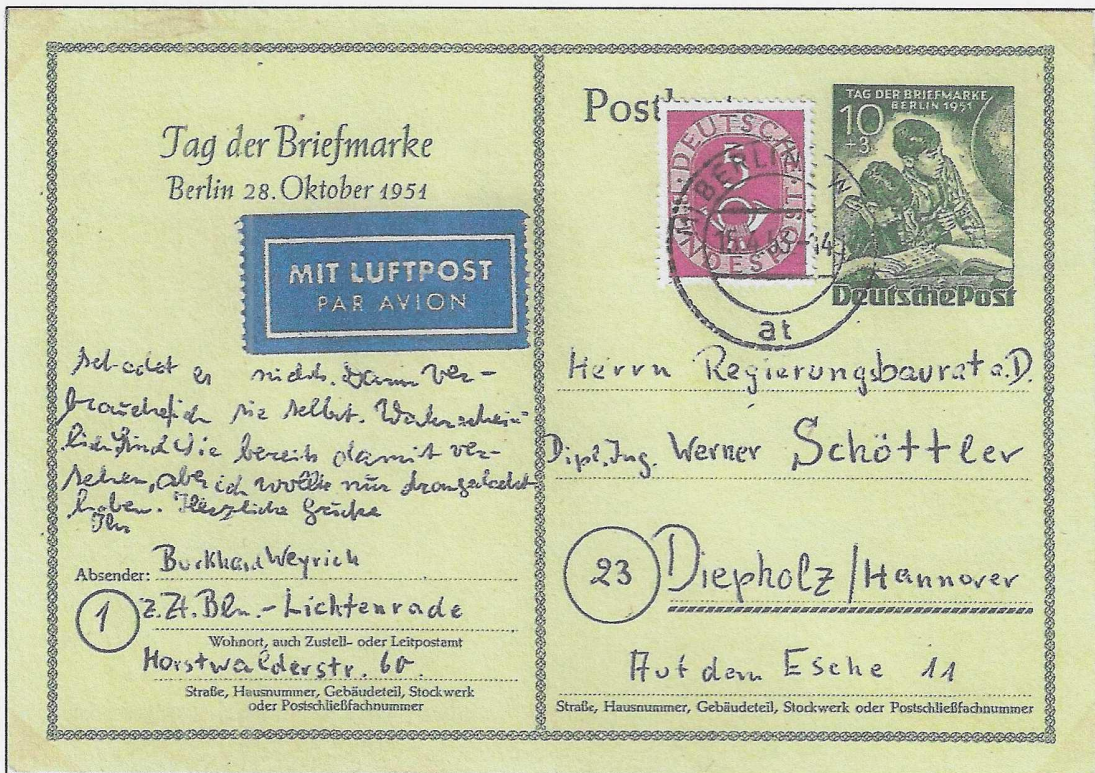 Tag der Briefmarke
Berlin 28. Oktober 1951
MIT LUFTPOST
PAR AVION
schadet es nichts. Dann ver-
brauche ich sie selbst. Wahrschein-
lich sind Sie bereits damit ver-
sehen, aber ich wollte nur drangedacht
haben. Herzliche Grüße
Ihr
Absender: Burkhard Weyrich
1 z.Zt. Bln.-Lichtenrade
Wohnort, auch Zustell- oder Leitpostamt
Horstwalderstr. 60.
Straße, Hausnummer, Gebäudeteil, Stockwerk
oder Postschließfachnummer
DEUTSCHE
BUNDESPOST
5
BERLIN W
at
TAG DER BRIEFMARKE
BERLIN 1951
10
+3
Deutsche Post
Herrn Regierungsbaurat a.D.
Dipl. Ing. Werner Schöttler
23 Diepholz/Hannover
Auf dem Esche 11
Straße, Hausnummer, Gebäudeteil, Stockwerk oder Postschließfachnummer